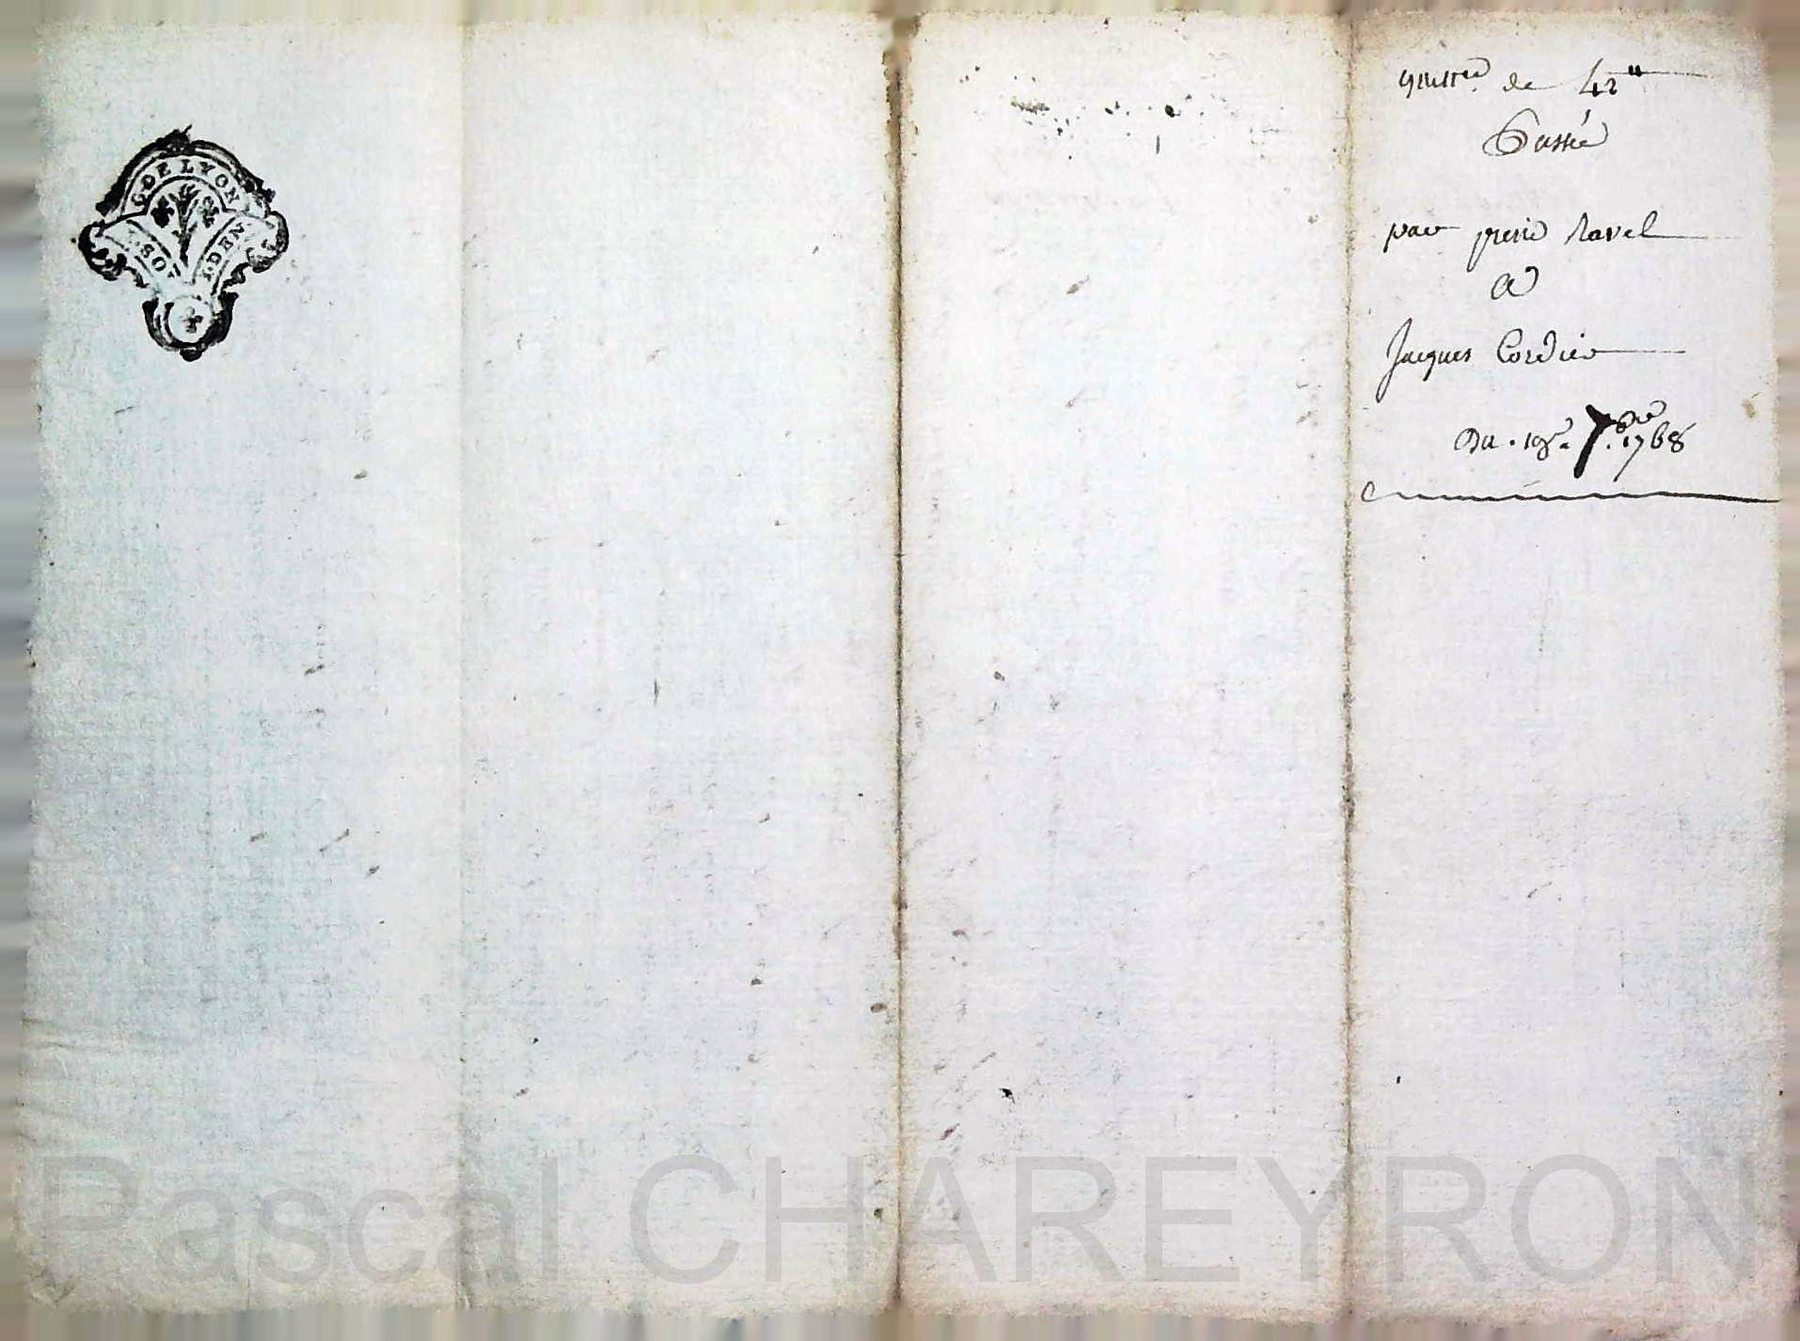 G. DE LYON
SOL
DEN
quittce de 42"
Passée
par pierre Ravel
a
Jacques Cordier
Du . 19e. 7.bre 1768
Pascal CHAREYRON